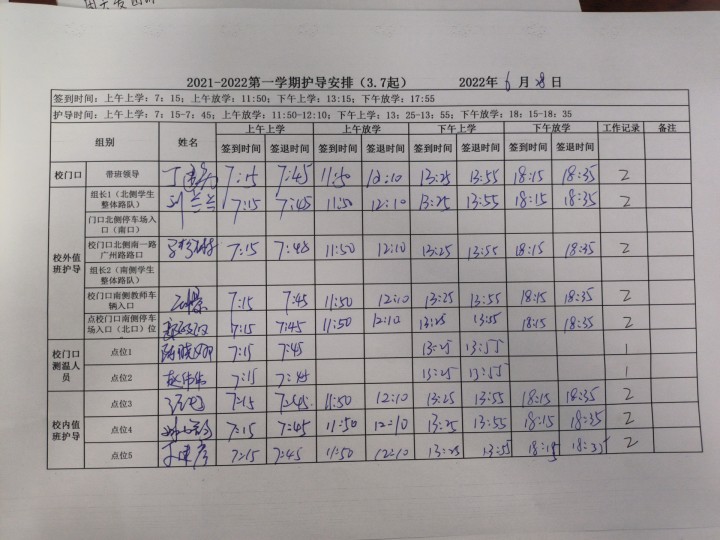 2021-2022第一学期护导安排（3.7起） 2022年 6 月 8 日
签到时间：上午上学：7：15；上午放学：11:50；下午上学：13:15；下午放学：17:55
护导时间：上午上学：7：15-7：45；上午放学：11:50-12:10；下午上学：13：25-13：55；下午放学：18：15-18：35
组别 姓名 上午上学 上午放学 下午上学 下午放学 工作记录 备注
签到时间 签退时间 签到时间 签退时间 签到时间 签退时间 签到时间 签退时间
校门口 带班领导 7:15 7:45 11:50 12:10 13:25 13:55 18:15 18:35 2
校外值班护导
组长1（北侧学生整体路队） 刘兰兰 7:15 7:45 11:50 12:10 13:25 13:55 18:15 18:35 2
门口北侧停车场入口（南口）
校门口北侧南一路广州路路口 7:15 7:48 11:50 12:10 13:25 13:55 18:15 18:35 2
组长2（南侧学生整体路队）
校门口南侧教师车辆入口 7:15 7:45 11:50 12:10 13:25 13:55 18:15 18:35 2
点校门口南侧停车场入口（北口）位 7:15 7:45 11:50 12:10 13:25 13:55 18:15 18:35 2
校门口测温人员
点位1 7:15 7:45 13:25 13:55 1
点位2 7:15 7:45 13:25 13:55 1
校内值班护导
点位3 7:15 7:45 11:50 12:10 13:25 13:55 18:15 18:35 2
点位4 7:15 7:45 11:50 12:10 13:25 13:55 18:15 18:35 2
点位5 7:15 7:45 11:50 12:10 13:25 13:55 18:15 18:35 2